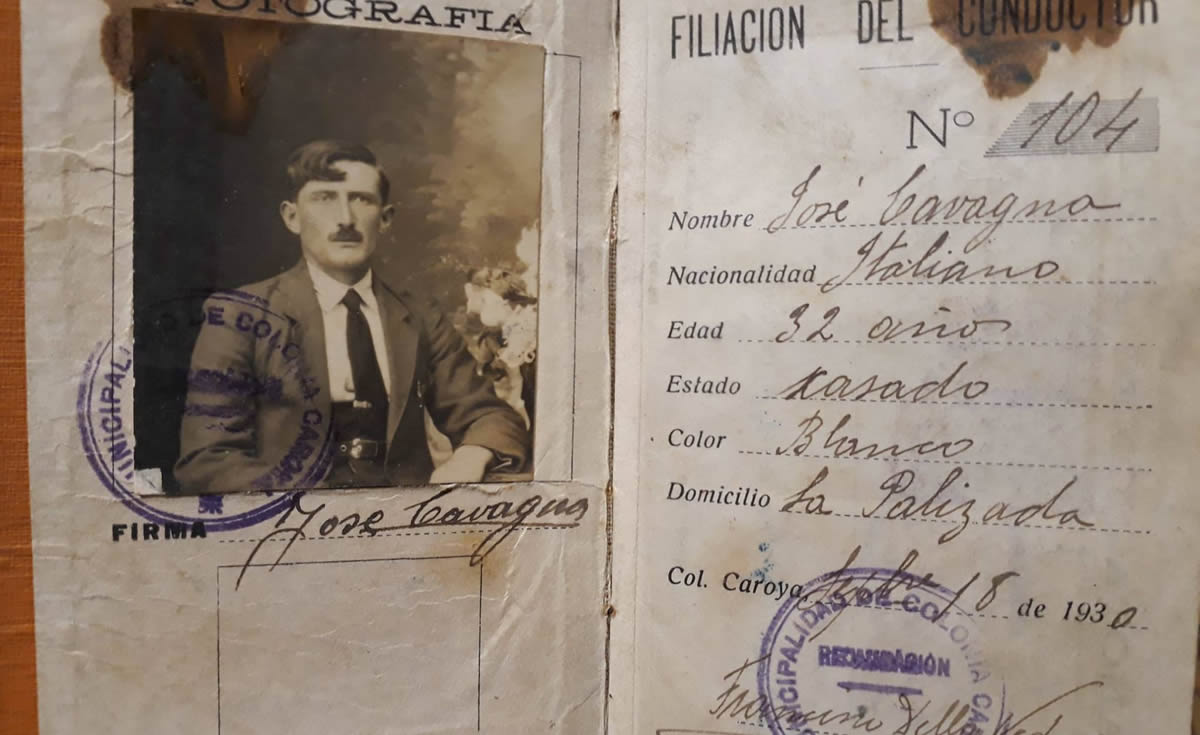 FOTOGRAFIA
MUNICIPALIDAD DE COLONIA CAROYA
FIRMA Jose Cavagna
FILIACION DEL CONDUCTOR
Nº 104
Nombre José Cavagna
Nacionalidad Italiano
Edad 32 año
Estado casado
Color Blanco
Domicilio La Palizada
Col. Caroya, 18 de 1930
MUNICIPALIDAD DE COLONIA CAROYA
RECAUDACIÓN